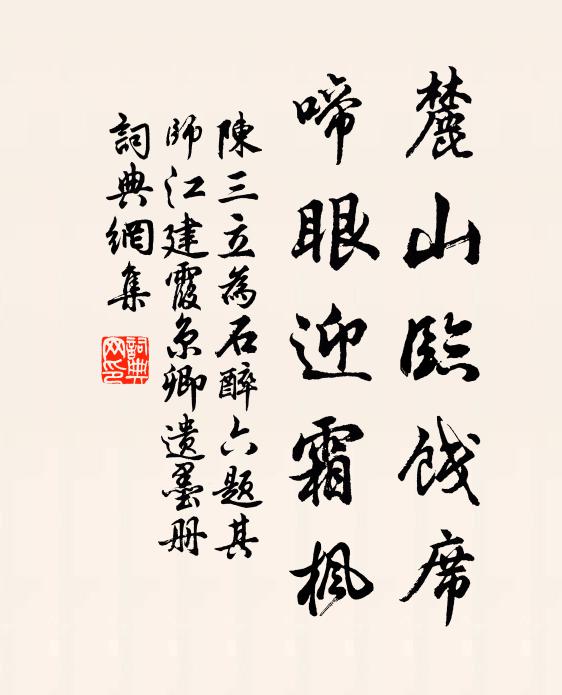 麓山臨餞席
啼眼迎霜楓
陳三立為石醉六題其
師江建霞京卿遺墨册
詞典網集
詞典網印